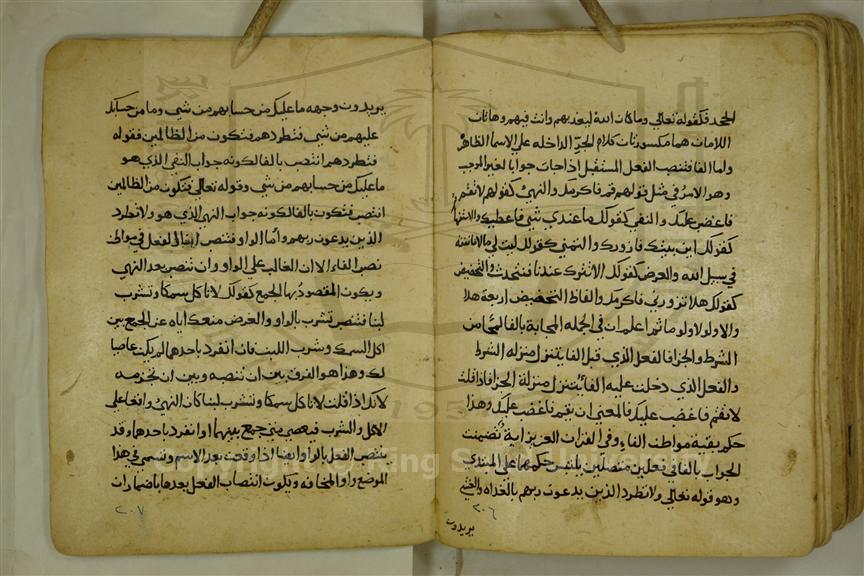 الجحد فكقوله تعالي وما كان الله ليعذبهم وانت فيهم وهاتان
اللامان هما مكسورتان كلام الجر الداخله علي الاسما الظاهر
واما الفا فتنصب الفعل المستقبل اذا جات جوابا لغير الموجب
وهو الامر في مثل قولهم قم فاكرمك والنهي كقولهم لا تقم
فاغضب عليك والنفي كقولك ما عندي شي فاعطيك والاستفهام
كقولك اين بيتك فازورك والتمني كقولك ليت لي مالا فانفقه
في سبيل الله والعرض كقولك الا تنزل عندنا فنتحدث والتحضيض
كقولك هلا تزورني فاكرمك والفاظ التحضيض اربعة هلا
والا ولولا ولوما ثم اعلم ان في الجمله المجابة بالفا لمحا من
الشرط والجزا فالفعل الذي قبل الفا يتنزل منزلة الشرط
والفعل الذي دخلت عليه الفا يتنزل منزلة الجزا فاذا قلت
لا تقم فاغضب عليك فالمعني ان تقم فاغضب عليك وهذا
حكم بقية مواطن الفاء وفي القران العزيز اية تضمنت
الجواب بالفا في فعلين متصلين يلتبس حكمهما علي المبتدي
وهو قوله تعالي ولا تطرد الذين يدعون ربهم بالغداه والعشي
يريدون
٢٠٦
يريدون وجهه ما عليك من حسابهم من شي وما من حسابك
عليهم من شي فتطردهم فتكون من الظالمين فقوله
فتطردهم انتصب بالفا لكونه جواب النفي الذي هو
ما عليك من حسابهم من شي وقوله تعالي فتكون من الظالمين
انتصب فتكون بالفا لكونه جواب النهي الذي هو ولا تطرد
الذين يدعون ربهم واما الواو فتنصب الفعل في مواطن
نصب الفاء الا ان الغالب علي الواو ان تنصب بعد النهي
ويكون المقصود بها الجمع كقولك لا تاكل سمكا وتشرب
لبنا فتنصب تشرب بالواو والغرض منعك اياه عن الجمع بين
اكل السمك وشرب اللبن فان انفرد باحدهما لم يكن عاصيا
لك وهذا هو الفرق بين ان تنصبه وبين ان تجزمه
لانك اذا قلت لا تاكل سمكا وتشرب لبنا كان النهي واقعا علي
الاكل والشرب فيعصي متي جمع بينهما او انفرد باحدهما وقد
ينتصب الفعل بالواو ايضا اذا وقعت بعد الاسم وتسمي في هذا
الموضع واو المخالفه ويكون انتصاب الفعل بعدها باضمار ان
٢٠٧
Copyright © King Saud University
1957